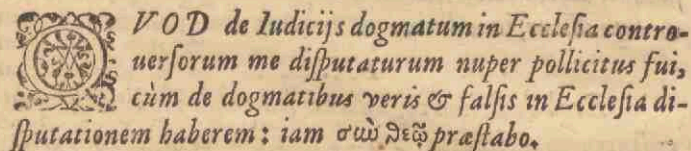 QVOD de Iudicijs dogmatum in Ecclesia contro-
uersorum me disputaturum nuper pollicitus fui,
cùm de dogmatibus veris & falsis in Ecclesia di-
sputationem haberem: iam σιὼ θεῷ præstabo.